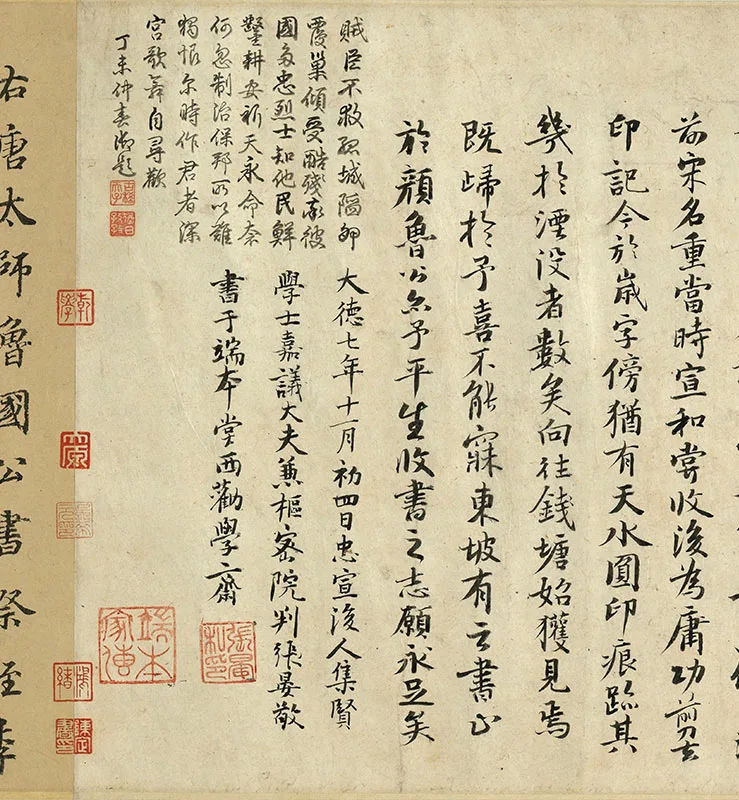 前宋名重當時宣和嘗收後為庸功前去
印記今於歲字傍猶有天水圓印痕跡其
幾於湮没者數矣向往錢塘始獲見焉
既歸於予喜不能寐東坡有云書止
於顏魯公亦予平生收書之志願永足矣
大德七年十一月初四日忠宣後人集賢
學士嘉議大夫兼樞密院判張晏敬
書于端本堂西勸學齋
賊臣不救孤城隔卵
覆巢傾受酷殘家彼
國多忠烈士知他民鮮
鑿耕安祈天永命奈
何忽制治保邦所以難
獨恨尔時作君者深
宮歌舞自尋歡
丁未仲春御題
張晏私印
端本家傳
乾學
右唐太師魯國公書祭姪季